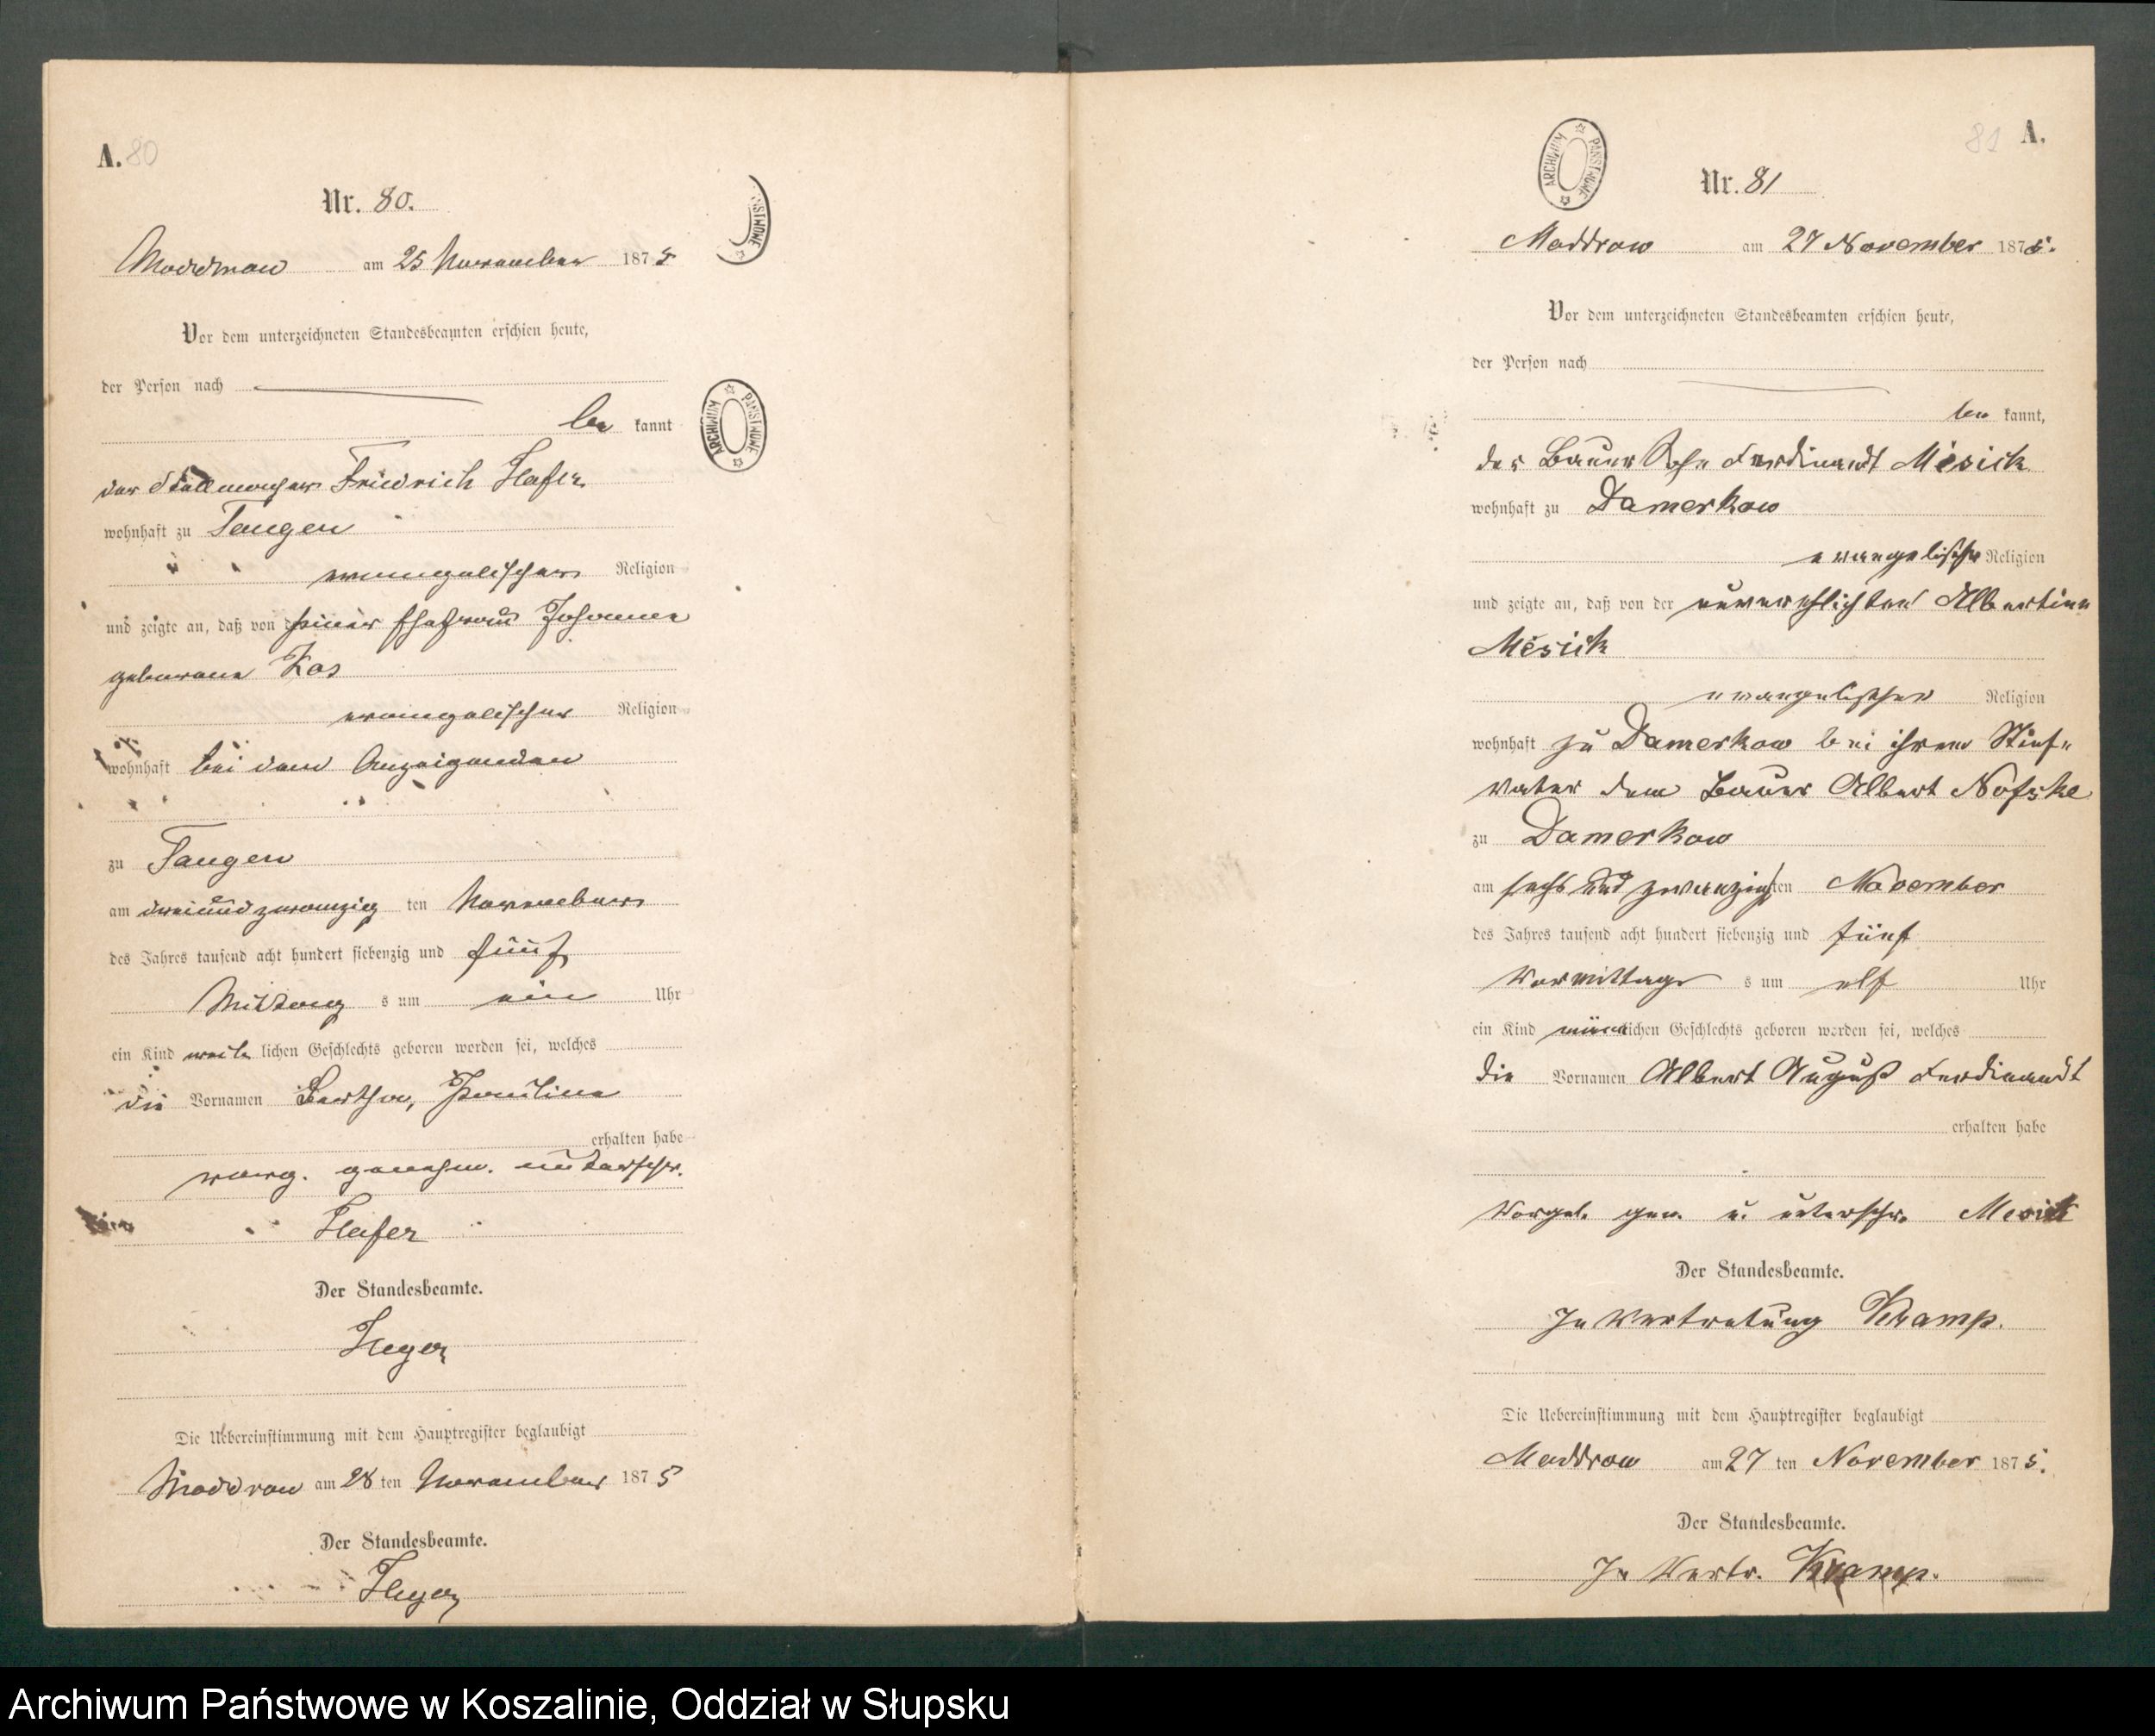 A. 80
Nr. 80.
Moddrow am 25 November 1875
Vor dem unterzeichneten Standesbeamten erschien heute,
der Person nach
be kannt
der Stellmacher Friedrich Hafer
wohnhaft zu Jangen
evangelischer Religion
und zeigte an, daß von seiner Ehefrau Johanne
geborene Kos
evangelischer Religion
wohnhaft bei dem Anzeigenden
zu Jangen
am dreiundzwanzig ten November
des Jahres tausend acht hundert siebenzig und fünf
Mittag s um ein Uhr
ein Kind weib lichen Geschlechts geboren worden sei, welches
die Vornamen Bertha, Pauline
erhalten habe
vorg. genehm. unterschr.
Hafer
Der Standesbeamte.
Heyer
Die Uebereinstimmung mit dem Hauptregister beglaubigt
Moddrow am 28 ten November 1875
Der Standesbeamte.
Heyer
ARCHIWUM PAŃSTWOWE
81 A.
Nr. 81
Moddrow am 27 November 1875.
Vor dem unterzeichneten Standesbeamten erschien heute,
der Person nach
be kannt,
der Bauer Sohn Ferdinandt Mesick
wohnhaft zu Damerkow
evangelischer Religion
und zeigte an, daß von der unverehlichten Albertine
Mesick
evangelischer Religion
wohnhaft zu Damerkow bei ihrem Stief-
vater dem Bauer Albert Nofske
zu Damerkow
am sechs und zwanzigsten November
des Jahres tausend acht hundert siebenzig und fünf
Vormittag s um elf Uhr
ein Kind männlichen Geschlechts geboren worden sei, welches
die Vornamen Albert August Ferdinandt
erhalten habe
Vorgel. gen. u. unterschr. Mesick
Der Standesbeamte.
In Vertretung Kramp.
Die Uebereinstimmung mit dem Hauptregister beglaubigt
Moddrow am 27 ten November 1875.
Der Standesbeamte.
In Vertr. Kramp.
ARCHIWUM PAŃSTWOWE
Archiwum Państwowe w Koszalinie, Oddział w Słupsku